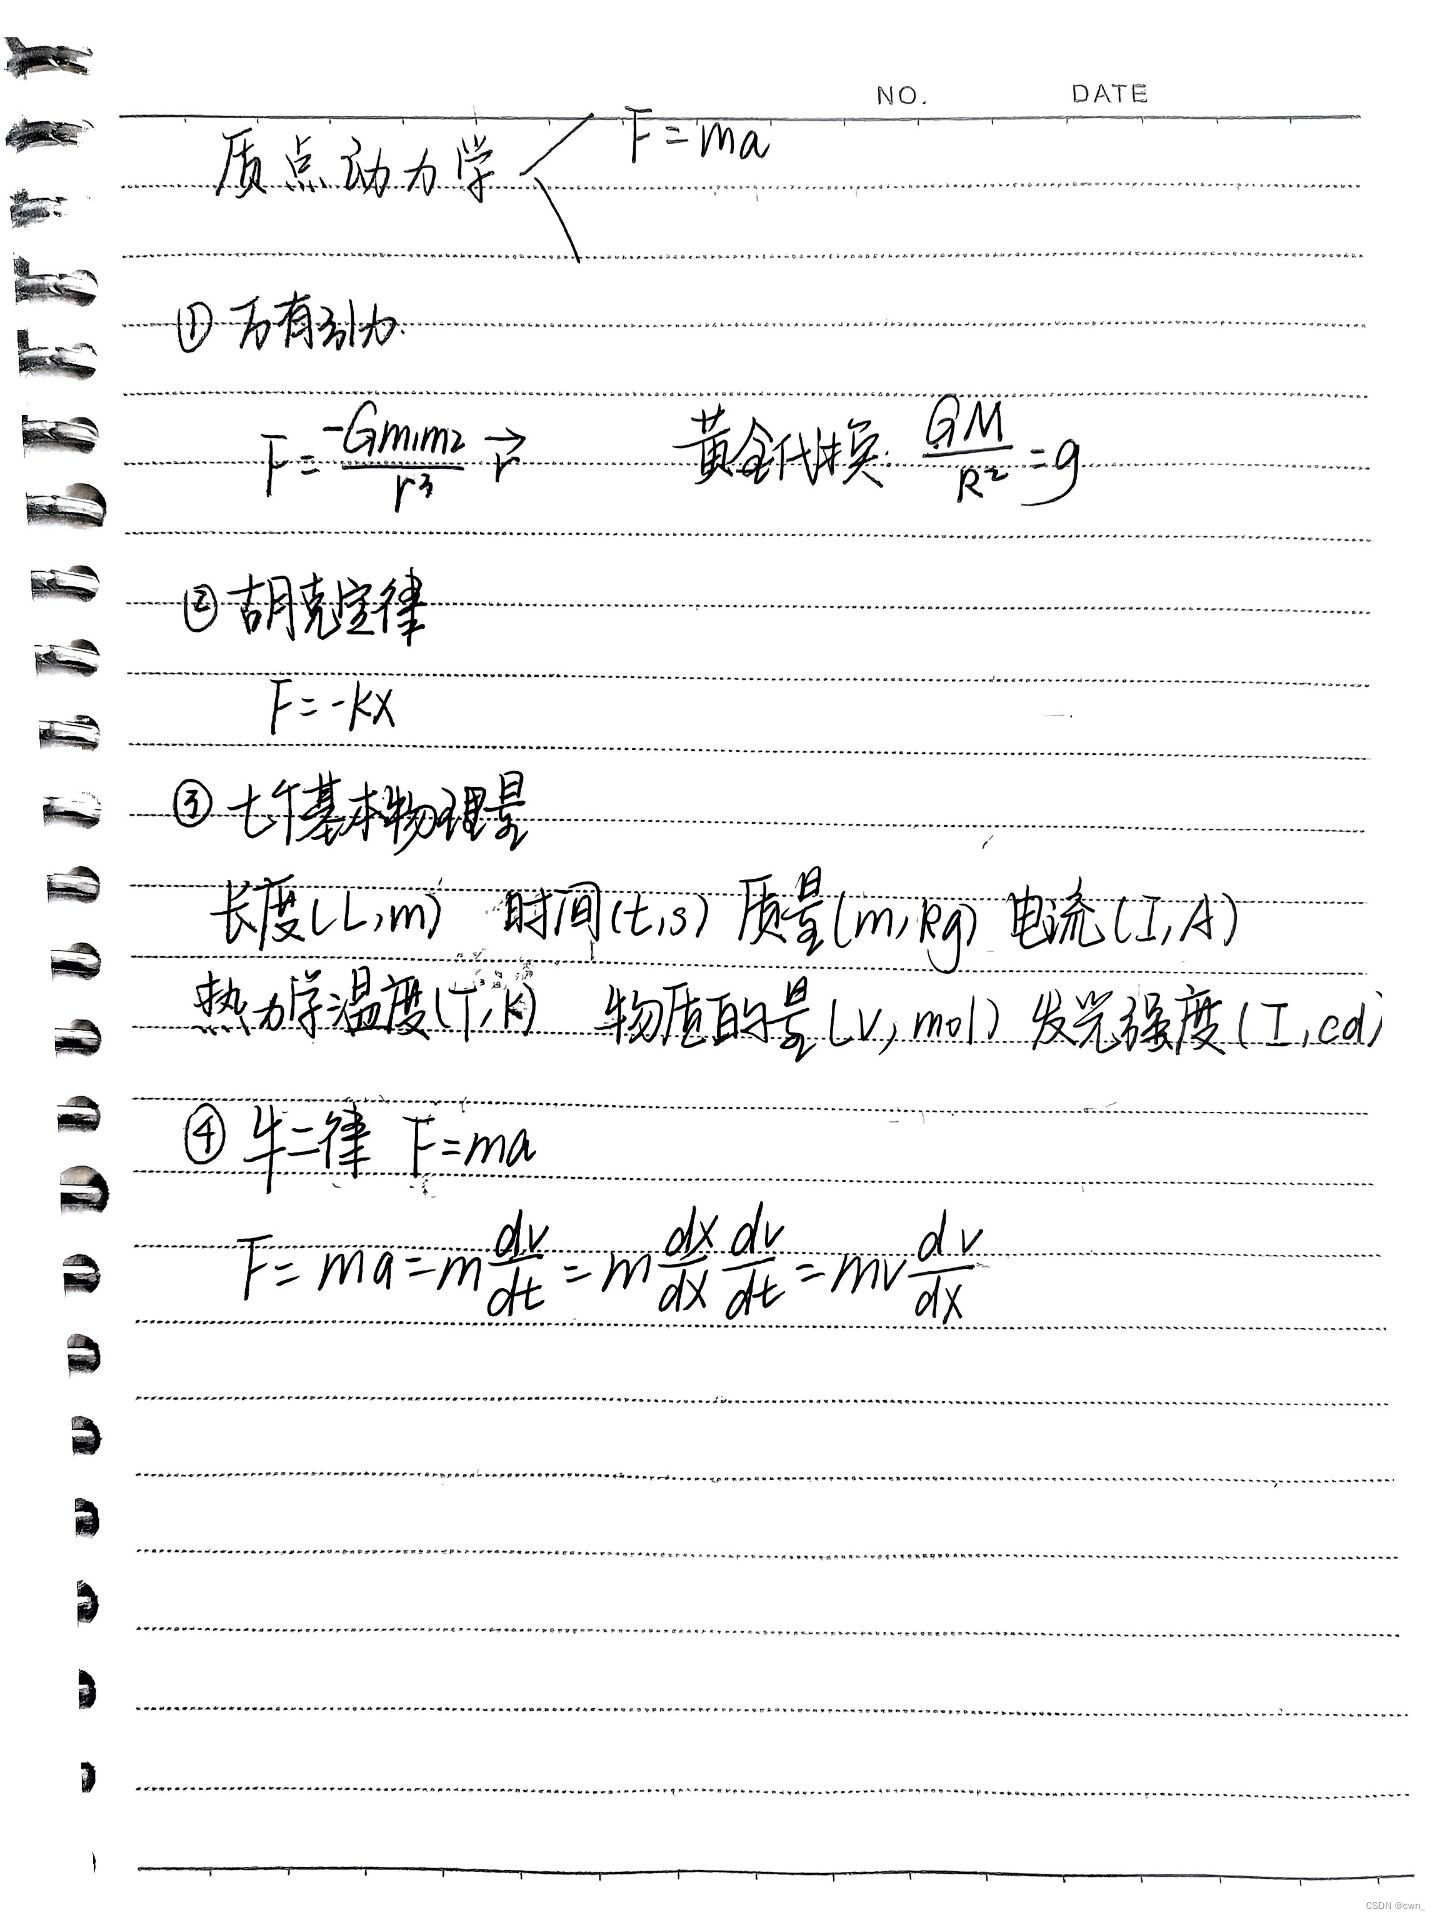 NO. DATE
质点动力学 F=ma
① 万有引力.
F=-Gm₁m₂/r³ r⃗ 黄金代换: GM/R²=g
② 胡克定律
F=-kx
③ 七个基本物理量
长度(L,m) 时间(t,s) 质量(m,kg) 电流(I,A)
热力学温度(T,K) 物质的量(ν,mol) 发光强度(I,cd)
④ 牛二律 F=ma
F=ma=m dv/dt=m dx/dx dv/dt=mv dv/dx
CSDN @cwn_